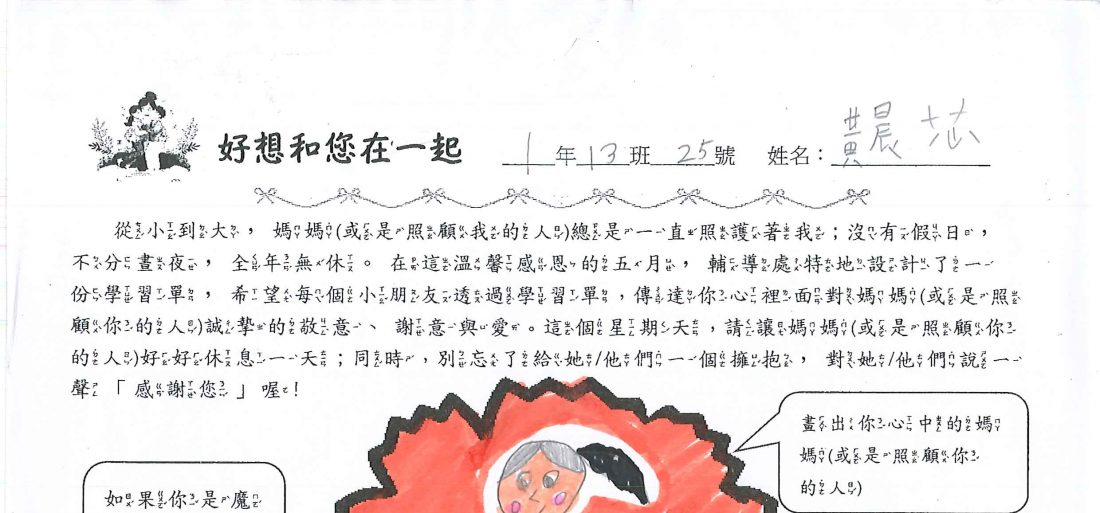 好想和您在一起 1年13班 25號 姓名：黃晨芯
從小到大，媽媽(或是照顧我的人)總是一直照護著我；沒有假日，
不分晝夜，全年無休。在這溫馨感恩的五月，輔導處特地設計了一
份學習單，希望每個小朋友透過學習單，傳達你心裡面對媽媽(或是照
顧你的人)誠摯的敬意、謝意與愛。這個星期天，請讓媽媽(或是照顧你
的人)好好休息一天；同時，別忘了給她/他們一個擁抱，對她/他們說一
聲「感謝您」喔！
畫出你心中的媽
媽(或是照顧你
的人)
如果你是魔